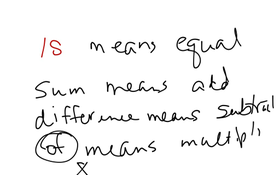 is means equal
Sum means add
difference means subtract
of means multiply
x